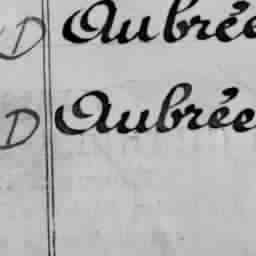 D Aubrée
D Aubrée